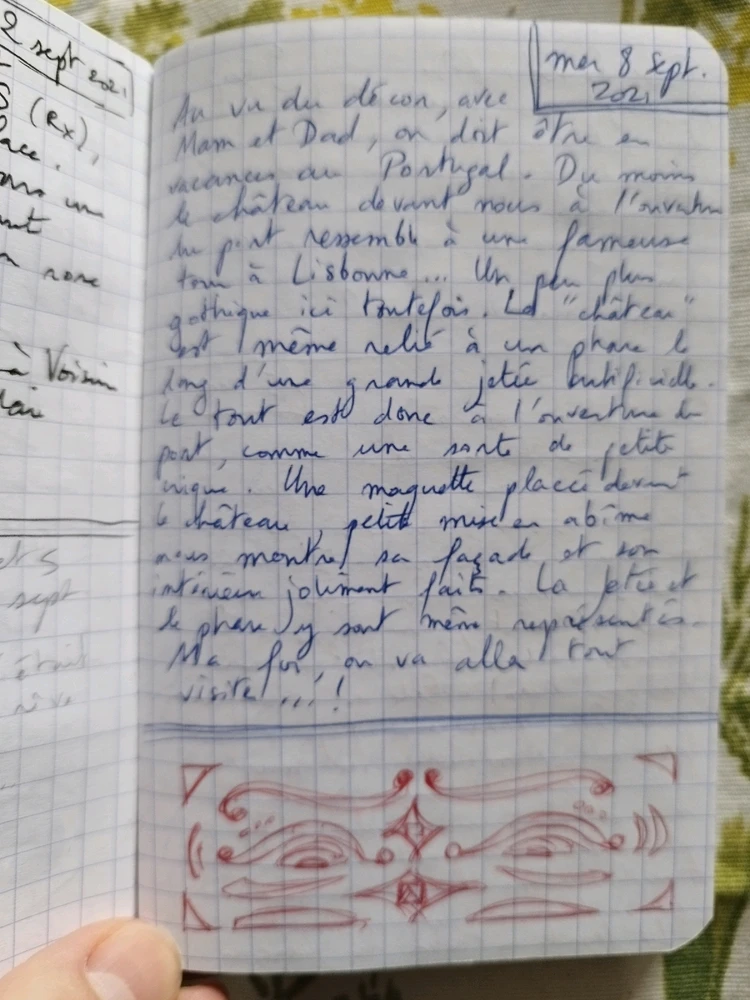 2 sept 2021
(Rx),
un
à Voisin
sept
était
mer 8 sept.
2021
Au vu du décor, avec
Mam et Dad, on doit être en
vacances au Portugal. Du moins
le château devant nous à l'ouverture
du port ressemble à une fameuse
tour à Lisbonne... Un peu plus
gothique ici toutefois. Le "château"
est même relié à un phare le
long d'une grande jetée artificielle.
Le tout est donc à l'ouverture du
port, comme une sorte de petite
crique. Une maquette placée devant
le château, petite mise en abîme
nous montre sa façade et son
intérieur joliment faits. La jetée et
le phare y sont même représentés.
Ma foi, on va aller tout
visiter...!